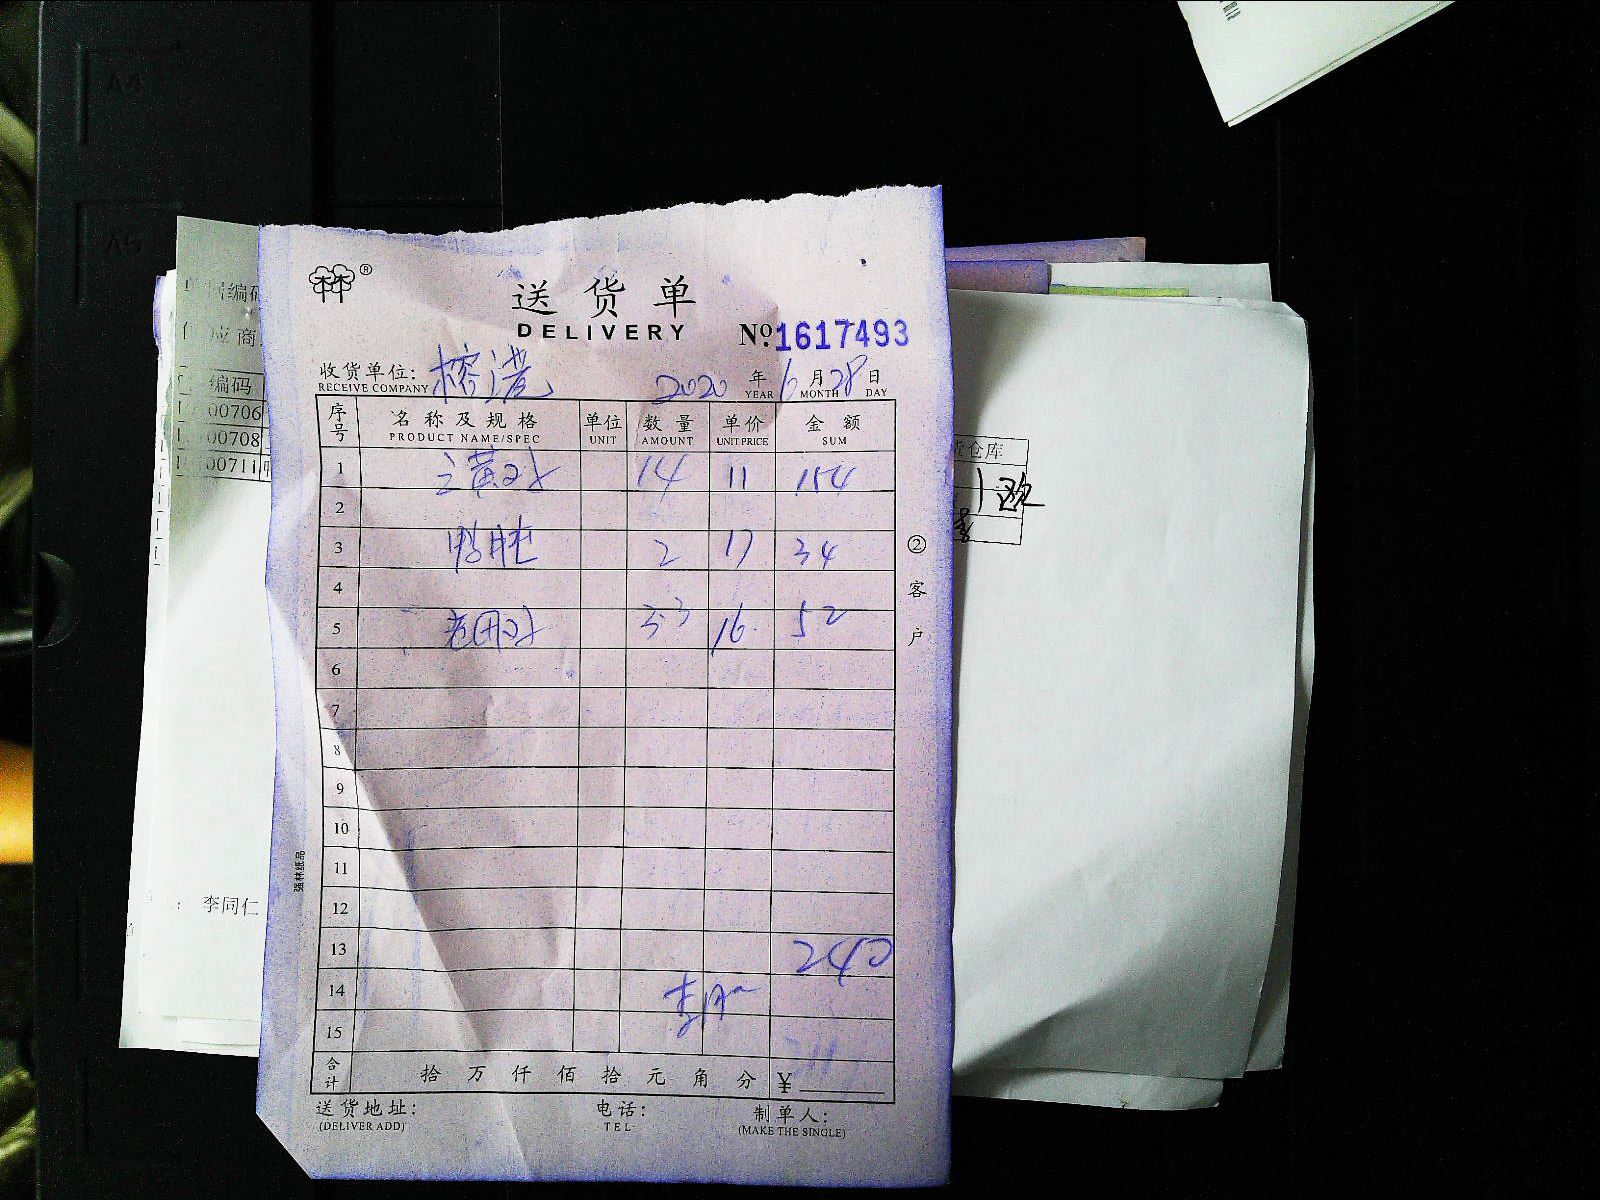 A4
A5
送货单
DELIVERY
№:1617493
收货单位:
RECEIVE COMPANY
2020 年 6 月 28 日
YEAR MONTH DAY
序号 名称及规格 单位 数量 单价 金额
PRODUCT NAME/SPEC UNIT AMOUNT UNIT PRICE SUM
1 三黄 14 11 154
2
3 鸭肫 2 17 34
4
5 3.3 16 52
6
7
8
9
10
11
12
13 240
14
15
合计 拾 万 仟 佰 拾 元 角 分 ¥
送货地址: 电话: 制单人:
(DELIVER ADD) TEL (MAKE THE SINGLE)
②客户
强林纸品
编码
应商
编码
00706
00708
00711
李同仁
仓库